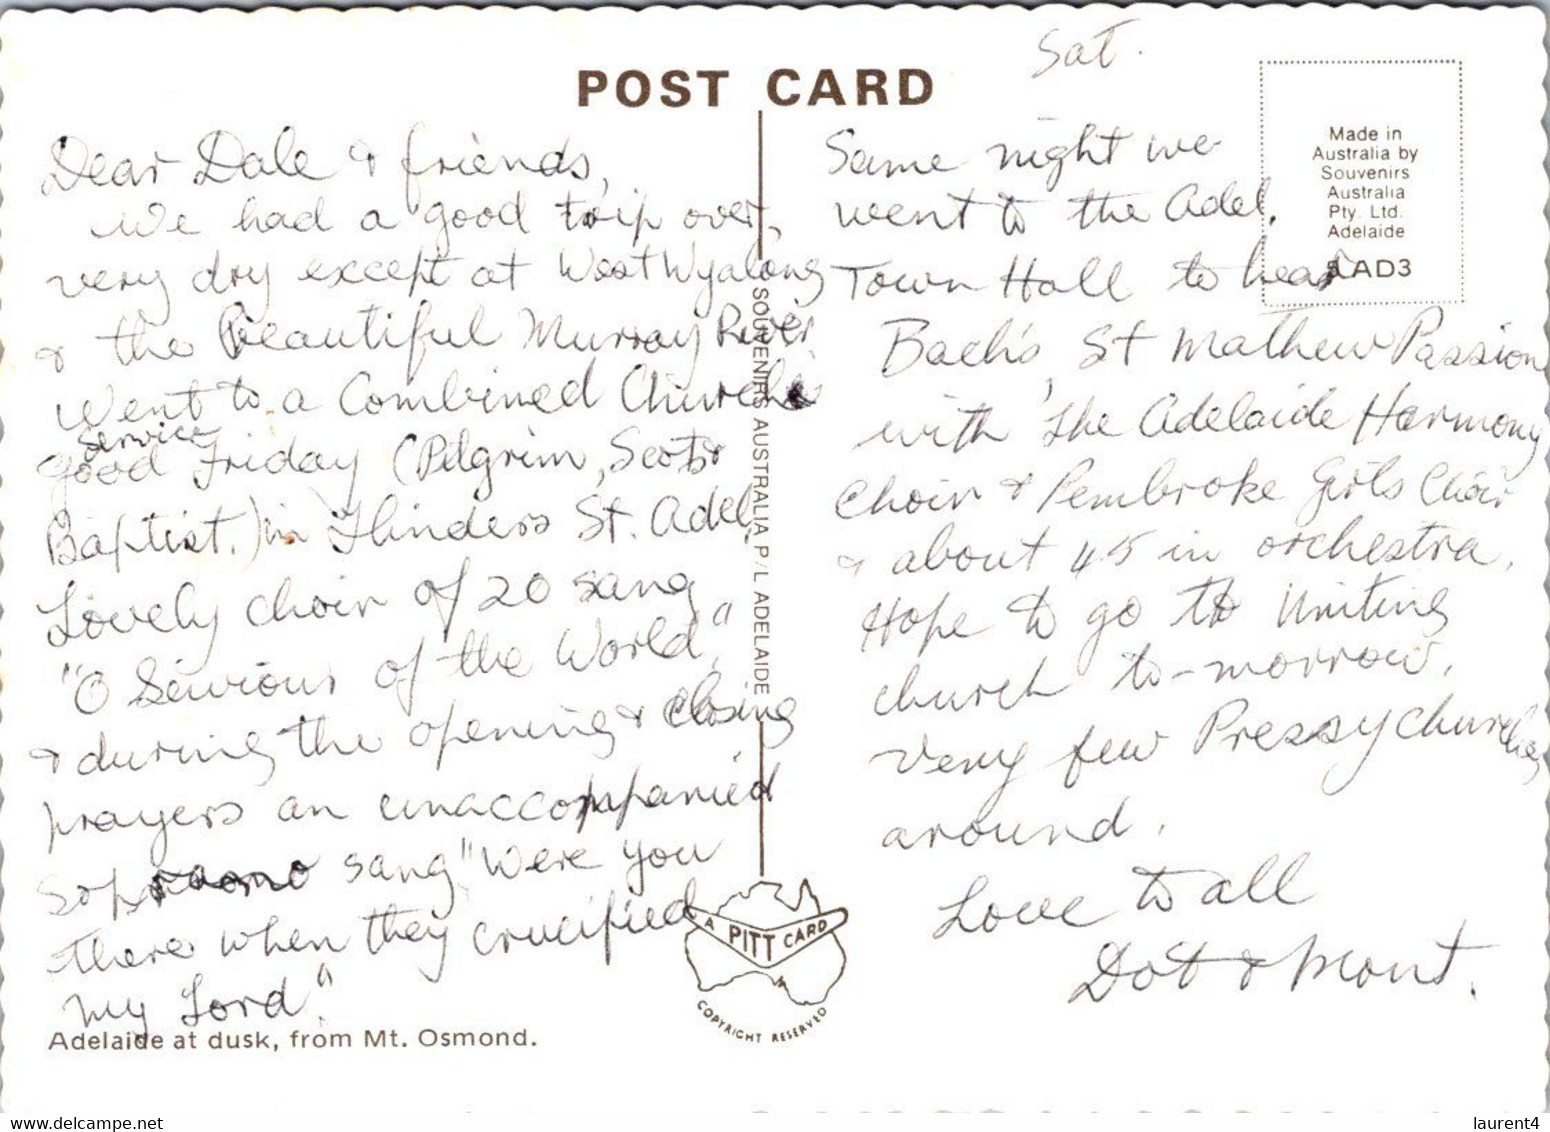 POST CARD
Sat.
Dear Dale & friends,
We had a good trip over,
very dry except at West Wyalong
& the Beautiful Murray River
Went to a Combined Church
Service
Good Friday (Pilgrim, Scots &
Baptist.) in Flinders St. Adel.
Lovely choir of 20 sang
"O Saviour of the World,"
& during the opening & closing
prayers an unaccompanied
soprano sang "Were you
there when they crucified
my Lord".
Adelaide at dusk, from Mt. Osmond.
SOUVENIRS AUSTRALIA P/L ADELAIDE
A PITT CARD
COPYRIGHT RESERVED
Same night we
went to the Adel.
Town Hall to hear
Bach's St Mathew Passion
with The Adelaide Harmony
Choir & Pembroke Girls Choir
& about 45 in orchestra.
Hope to go to Uniting
church to-morrow.
Very few Pressy Churches
around.
Love to all
Dot & Mont.
Made in
Australia by
Souvenirs
Australia
Pty. Ltd.
Adelaide
AD3
laurent4